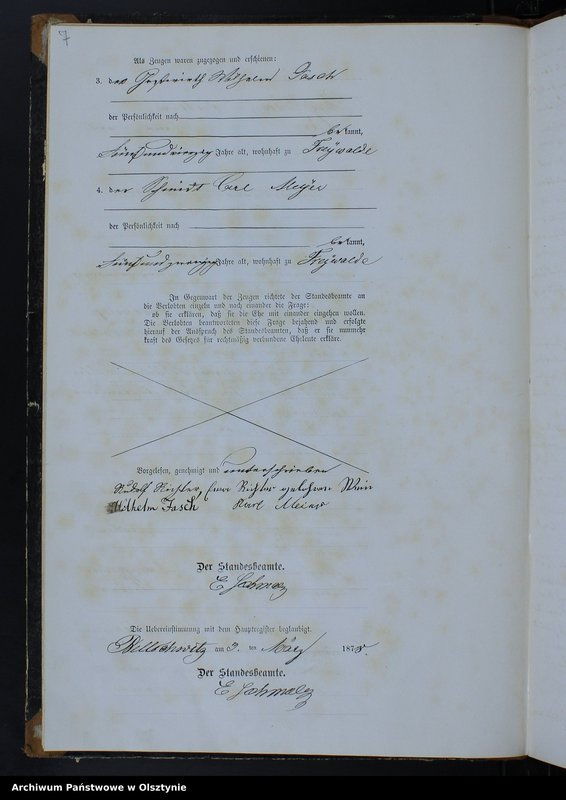 7
Als Zeugen waren zugezogen und erschienen:
3. der Gastwirth Wilhelm Jasch
der Persönlichkeit nach
bekannt,
fünfundvierzig Jahre alt, wohnhaft zu Freywalde
4. der Schmidt Carl Meyer
der Persönlichkeit nach
bekannt,
fünfundzwanzig Jahre alt, wohnhaft zu Freywalde
In Gegenwart der Zeugen richtete der Standesbeamte an
die Verlobten einzeln und nach einander die Frage:
ob sie erklären, daß sie die Ehe mit einander eingehen wollen.
Die Verlobten beantworteten diese Frage bejahend und erfolgte
hierauf der Ausspruch des Standesbeamten, daß er sie nunmehr
kraft des Gesetzes für rechtmäßig verbundene Eheleute erkläre.
Vorgelesen, genehmigt und unterschrieben
Rudolf Richter, Richter geborene
Wilhelm Jasch Karl
Der Standesbeamte.
E
Die Uebereinstimmung mit dem Hauptregister beglaubigt.
am 3. ten März 187
Der Standesbeamte.
E
Archiwum Państwowe w Olsztynie